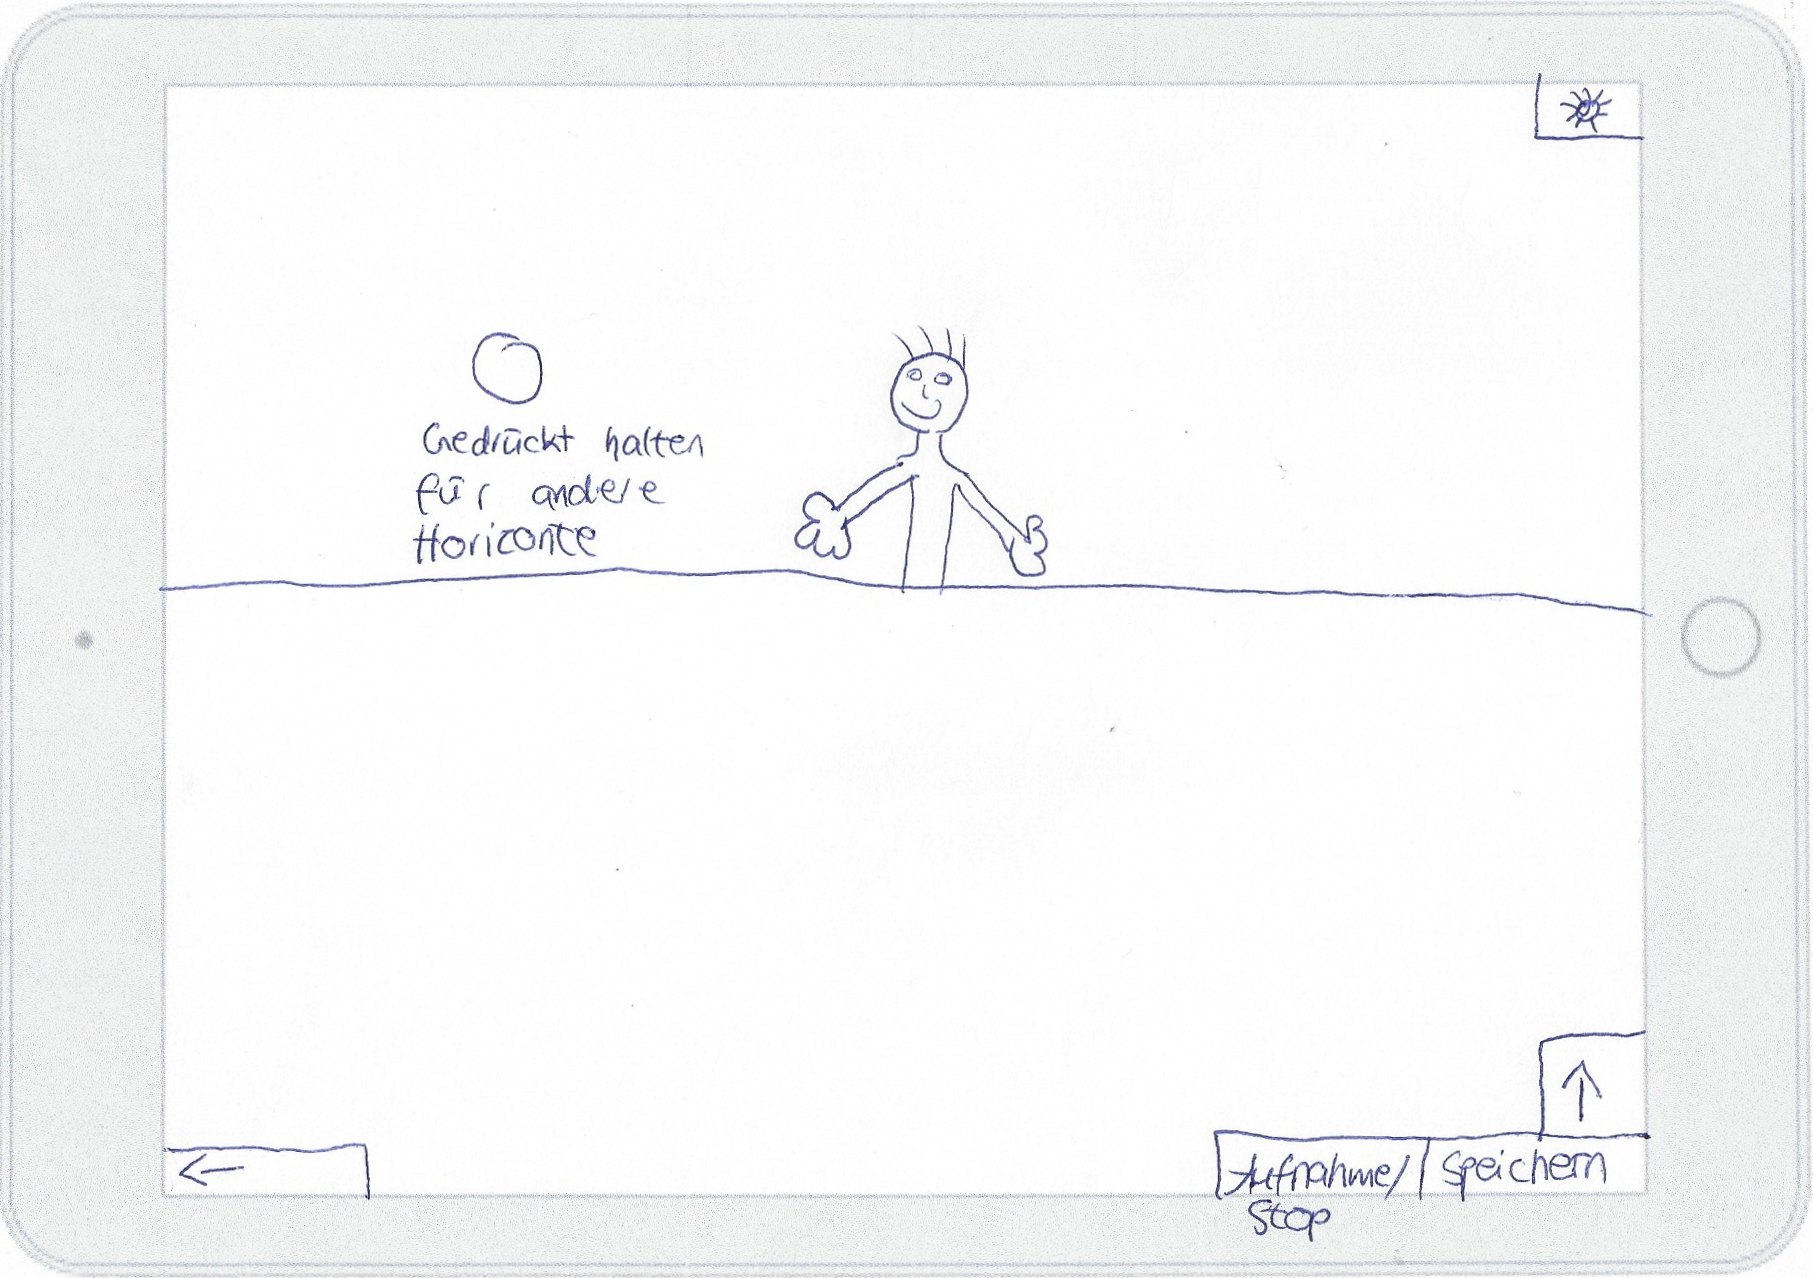 Gedrückt halten
für andere
Horizonte
Aufnahme/
Stop
Speichern